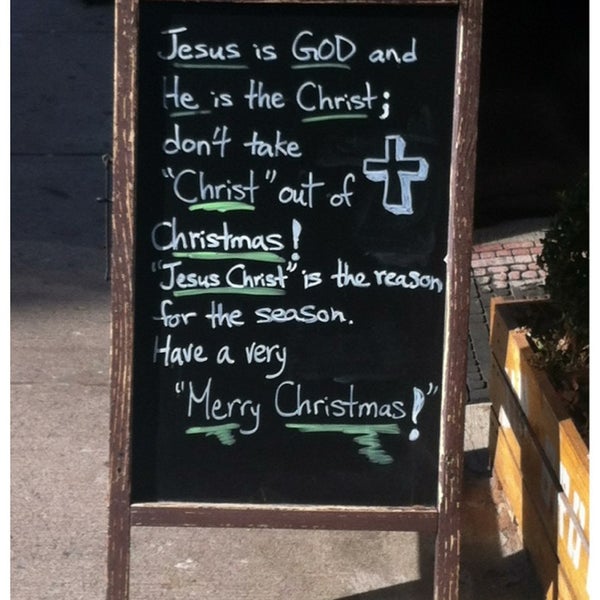 Jesus is GOD and
He is the Christ;
don't take
"Christ" out of
Christmas!
"Jesus Christ" is the reason
for the season.
Have a very
"Merry Christmas!"